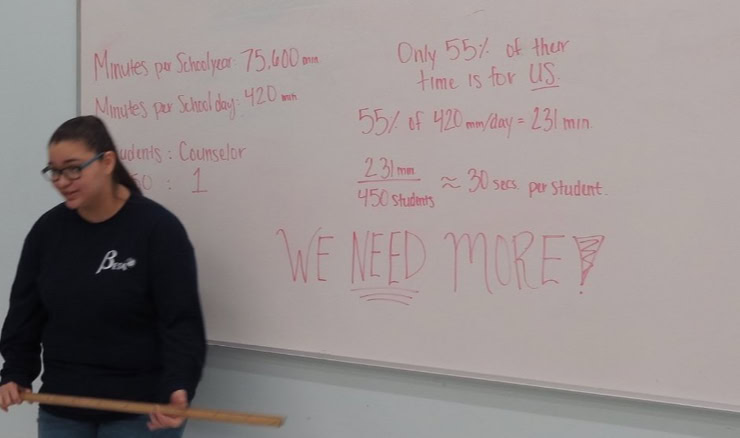 Minutes per Schoolyear: 75,600 min
Minutes per School day: 420 min
udents : Counselor
50 : 1
Only 55% of their
time is for US.
55% of 420 min/day = 231 min.
231 min
450 students
≈ 30 secs. per student.
WE NEED MORE!